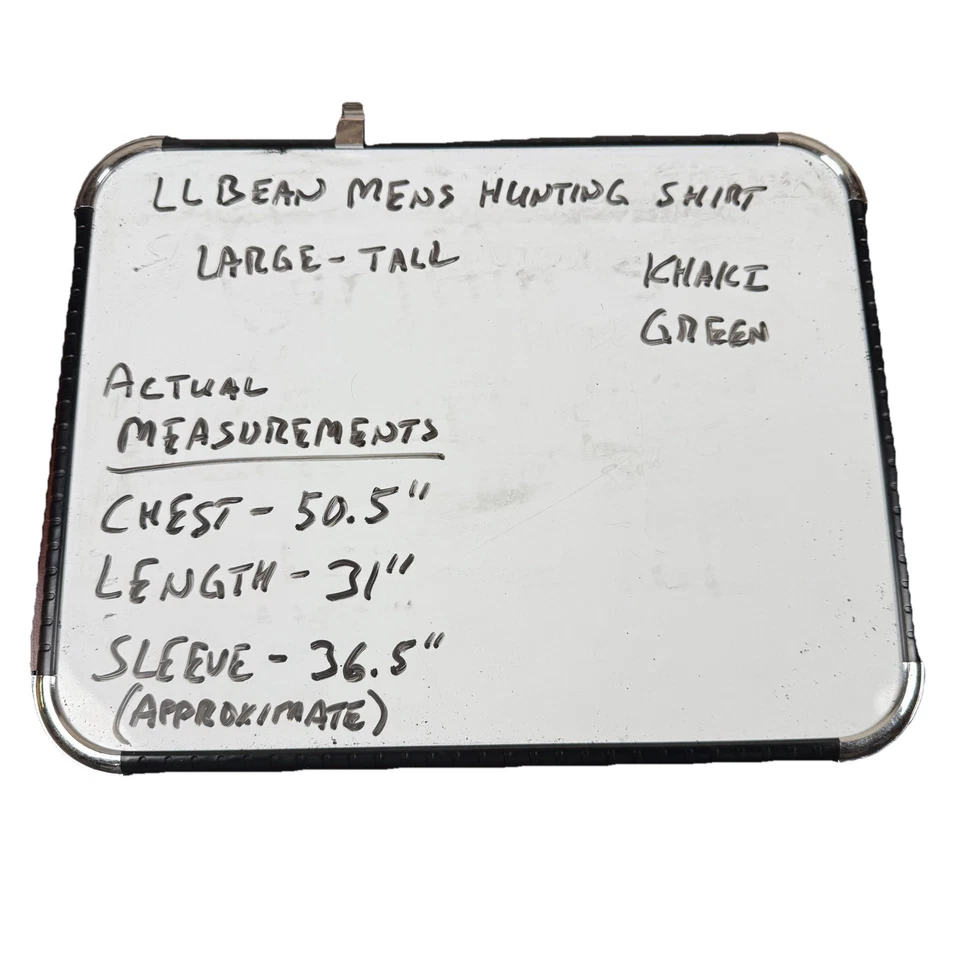 LL BEAN MENS HUNTING SHIRT
LARGE-TALL
KHAKI
GREEN
ACTUAL
MEASUREMENTS
CHEST - 50.5"
LENGTH - 31"
SLEEVE - 36.5"
(APPROXIMATE)